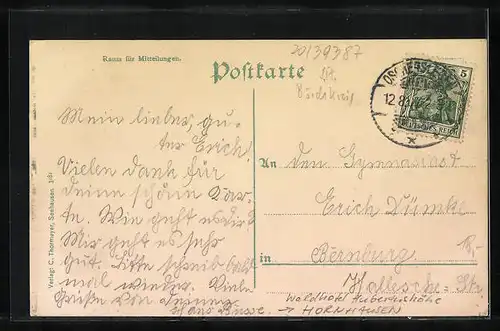 Raum für Mitteilungen.
20/39387
Postkarte
OSCHERSLEBEN
12.8.
5
DEUTSCHES REICH
Mein lieber, gu-
ter Erich!
Vielen Dank für
deine schöne Kar-
te. Wie geht es dir?
Mir geht es sehr
gut. Bitte schreib bald
mal wieder. Viele
Grüße von deinem
Hans Busse.
An den Gymnasiast
Erich Dümke
in Bernburg
Hallesche Str
18,-
Waldhotel Hubertushöhe
→ HORNHAUSEN
Verlag: C. Thormeyer, Seehausen.